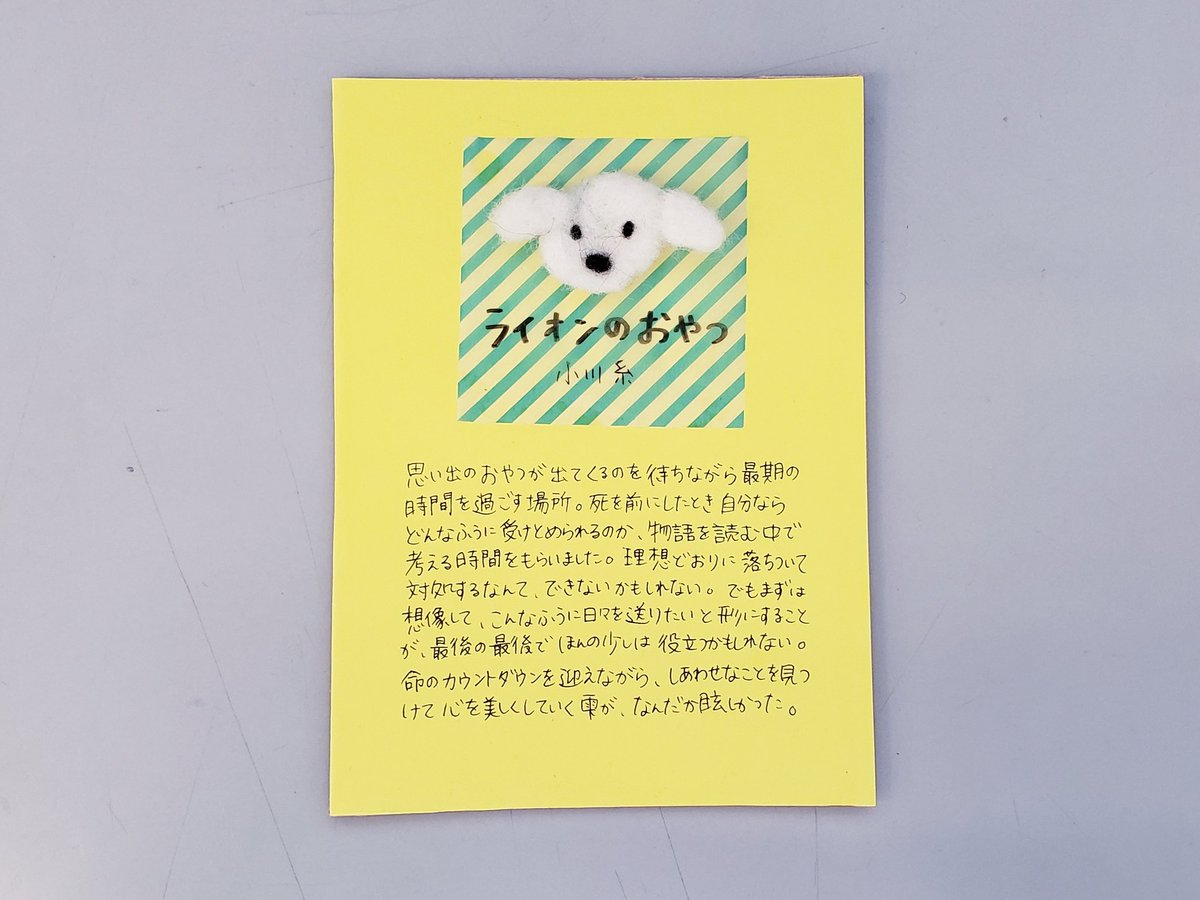 ライオンのおやつ
小川糸
思い出のおやつが出てくるのを待ちながら最期の
時間を過ごす場所。死を前にしたとき自分なら
どんなふうに受けとめられるのか、物語を読む中で
考える時間をもらいました。理想どおりに落ちついて
対処するなんて、できないかもしれない。でもまずは
想像して、こんなふうに日々を送りたいと形にすること
が、最後の最後でほんの少しは役立つかもしれない。
命のカウントダウンを迎えながら、しあわせなことを見つ
けて心を美しくしていく雫が、なんだか眩しかった。